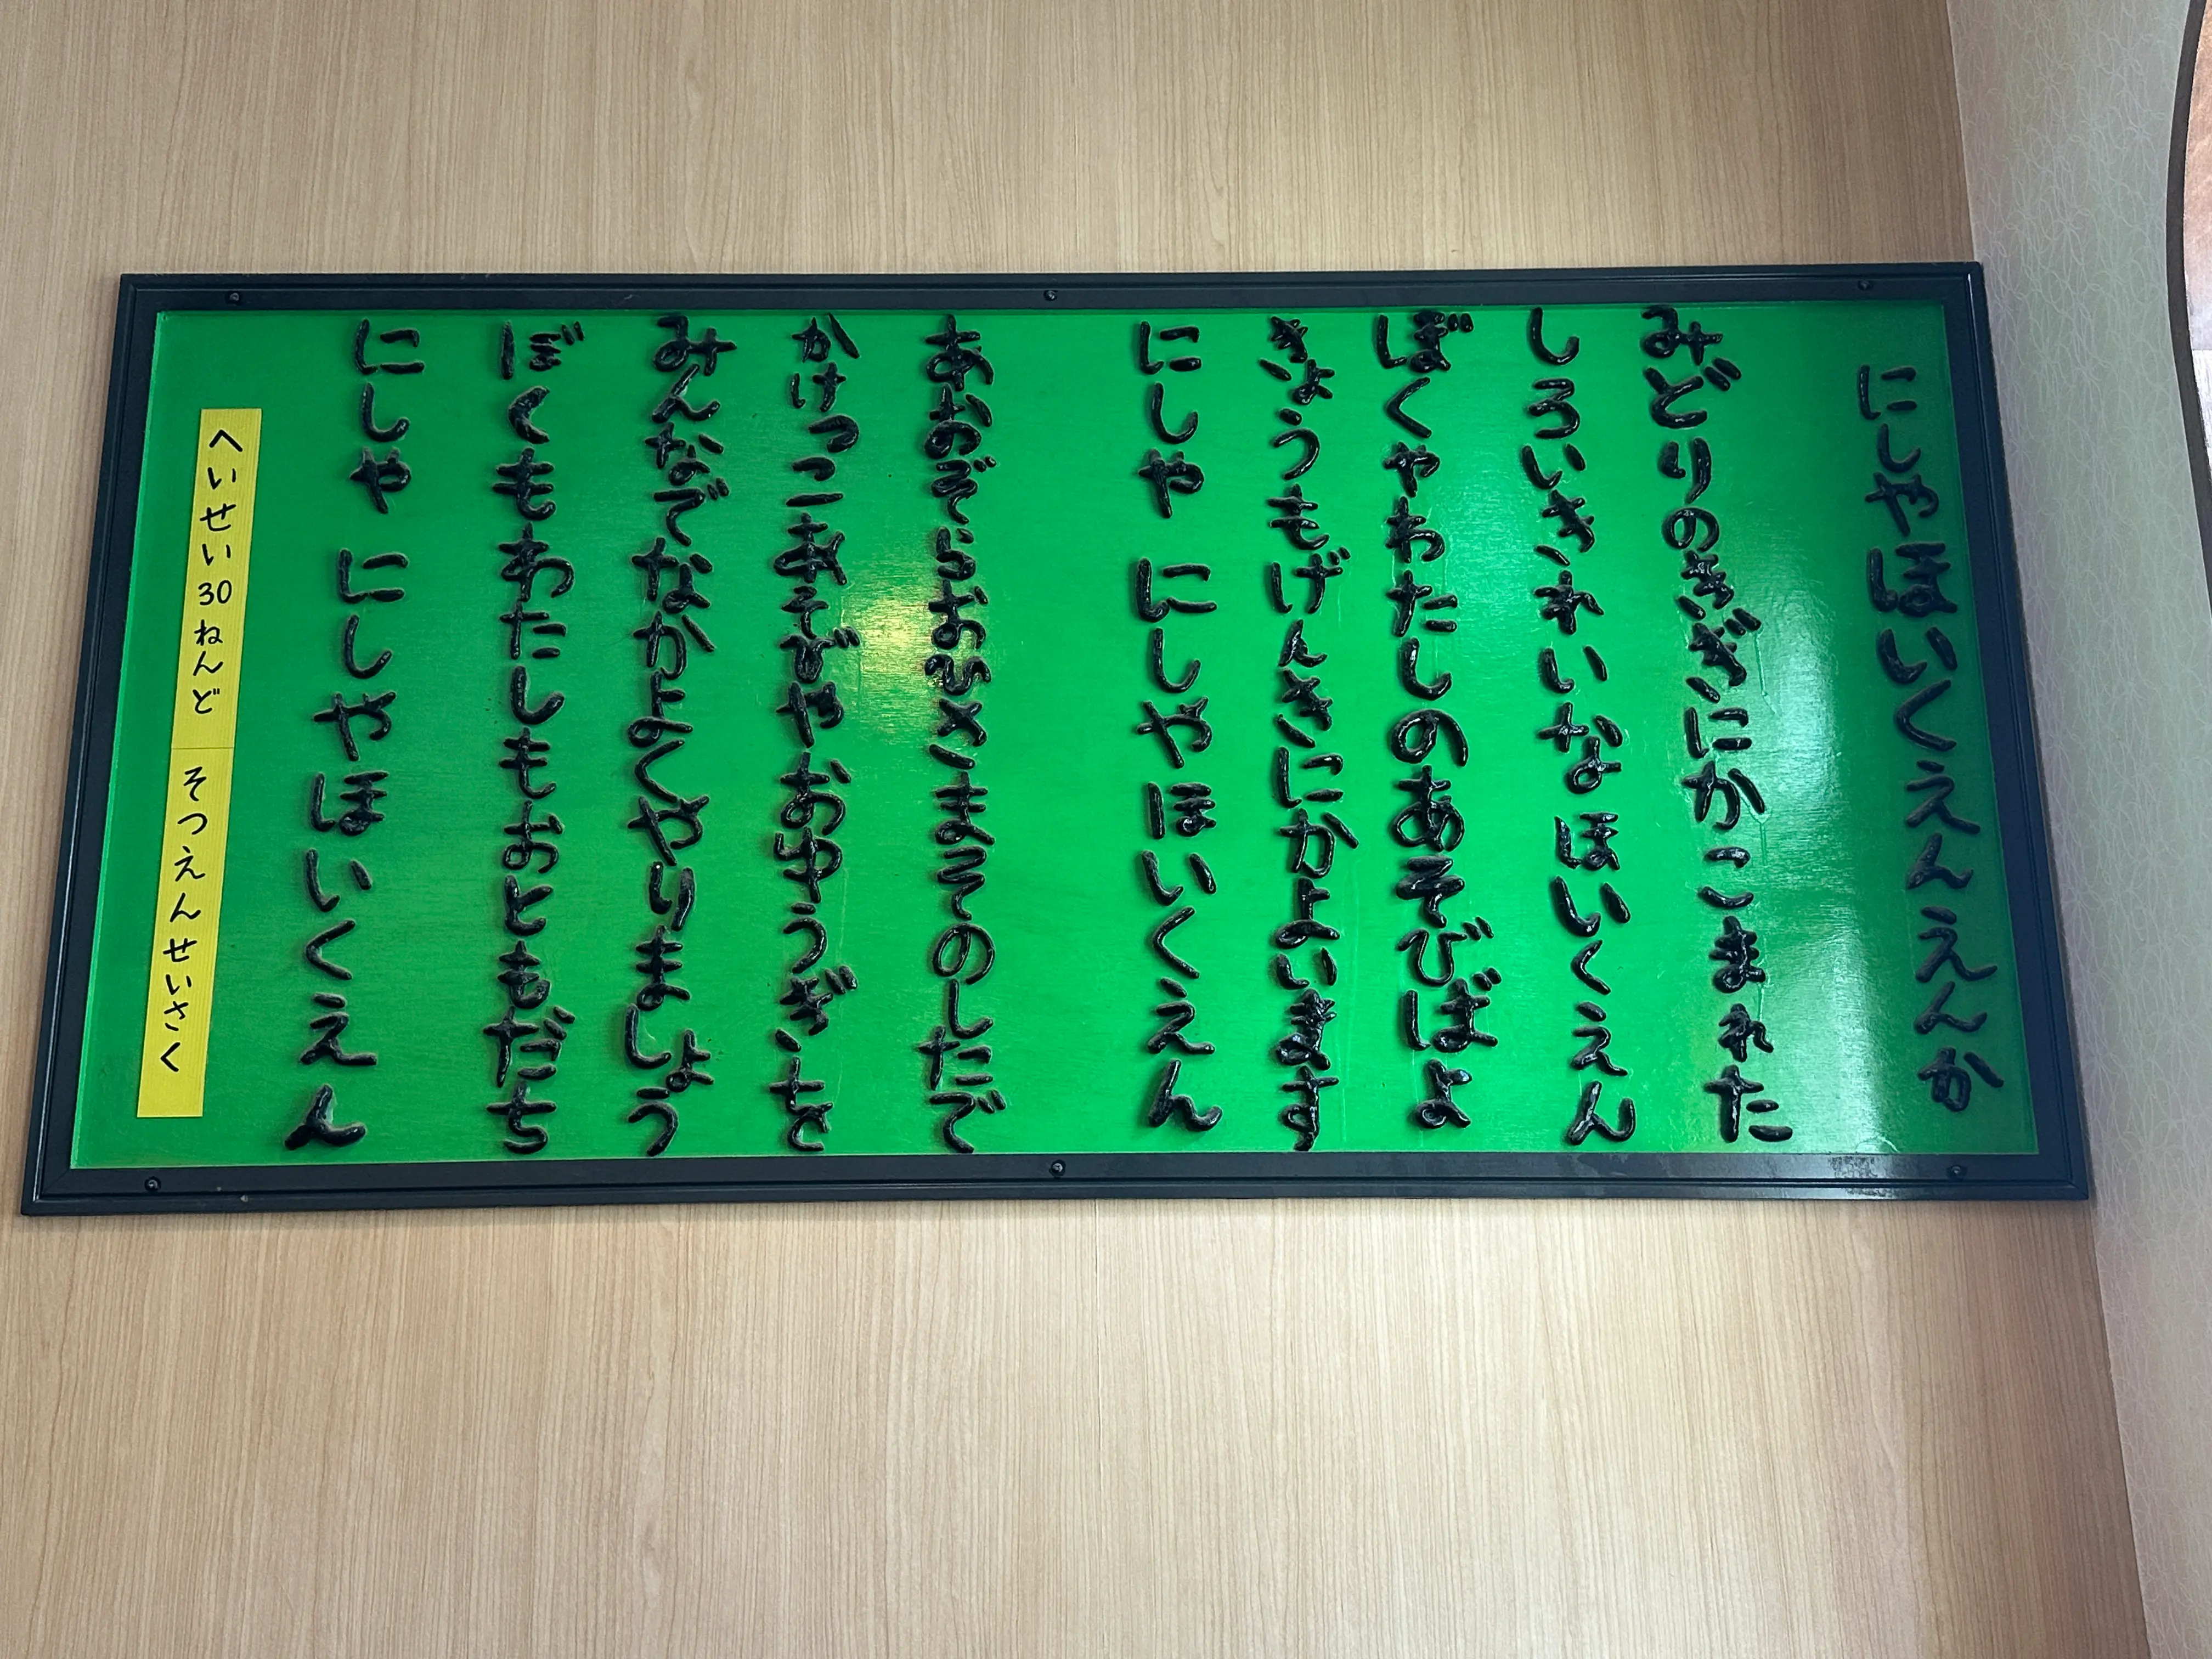 にしやほいくえんえんか
みどりのきぎにかこまれた
しろいきれいなほいくえん
ぼくやわたしのあそびばよ
きょうもげんきにかよいます
にしや にしやほいくえん
あおぞらおひさまそのしたで
かけっこあそびやおゆうぎを
みんなでなかよくやりましょう
ぼくもわたしもおともだち
にしや にしやほいくえん
へいせい30ねんど そつえんせいさく